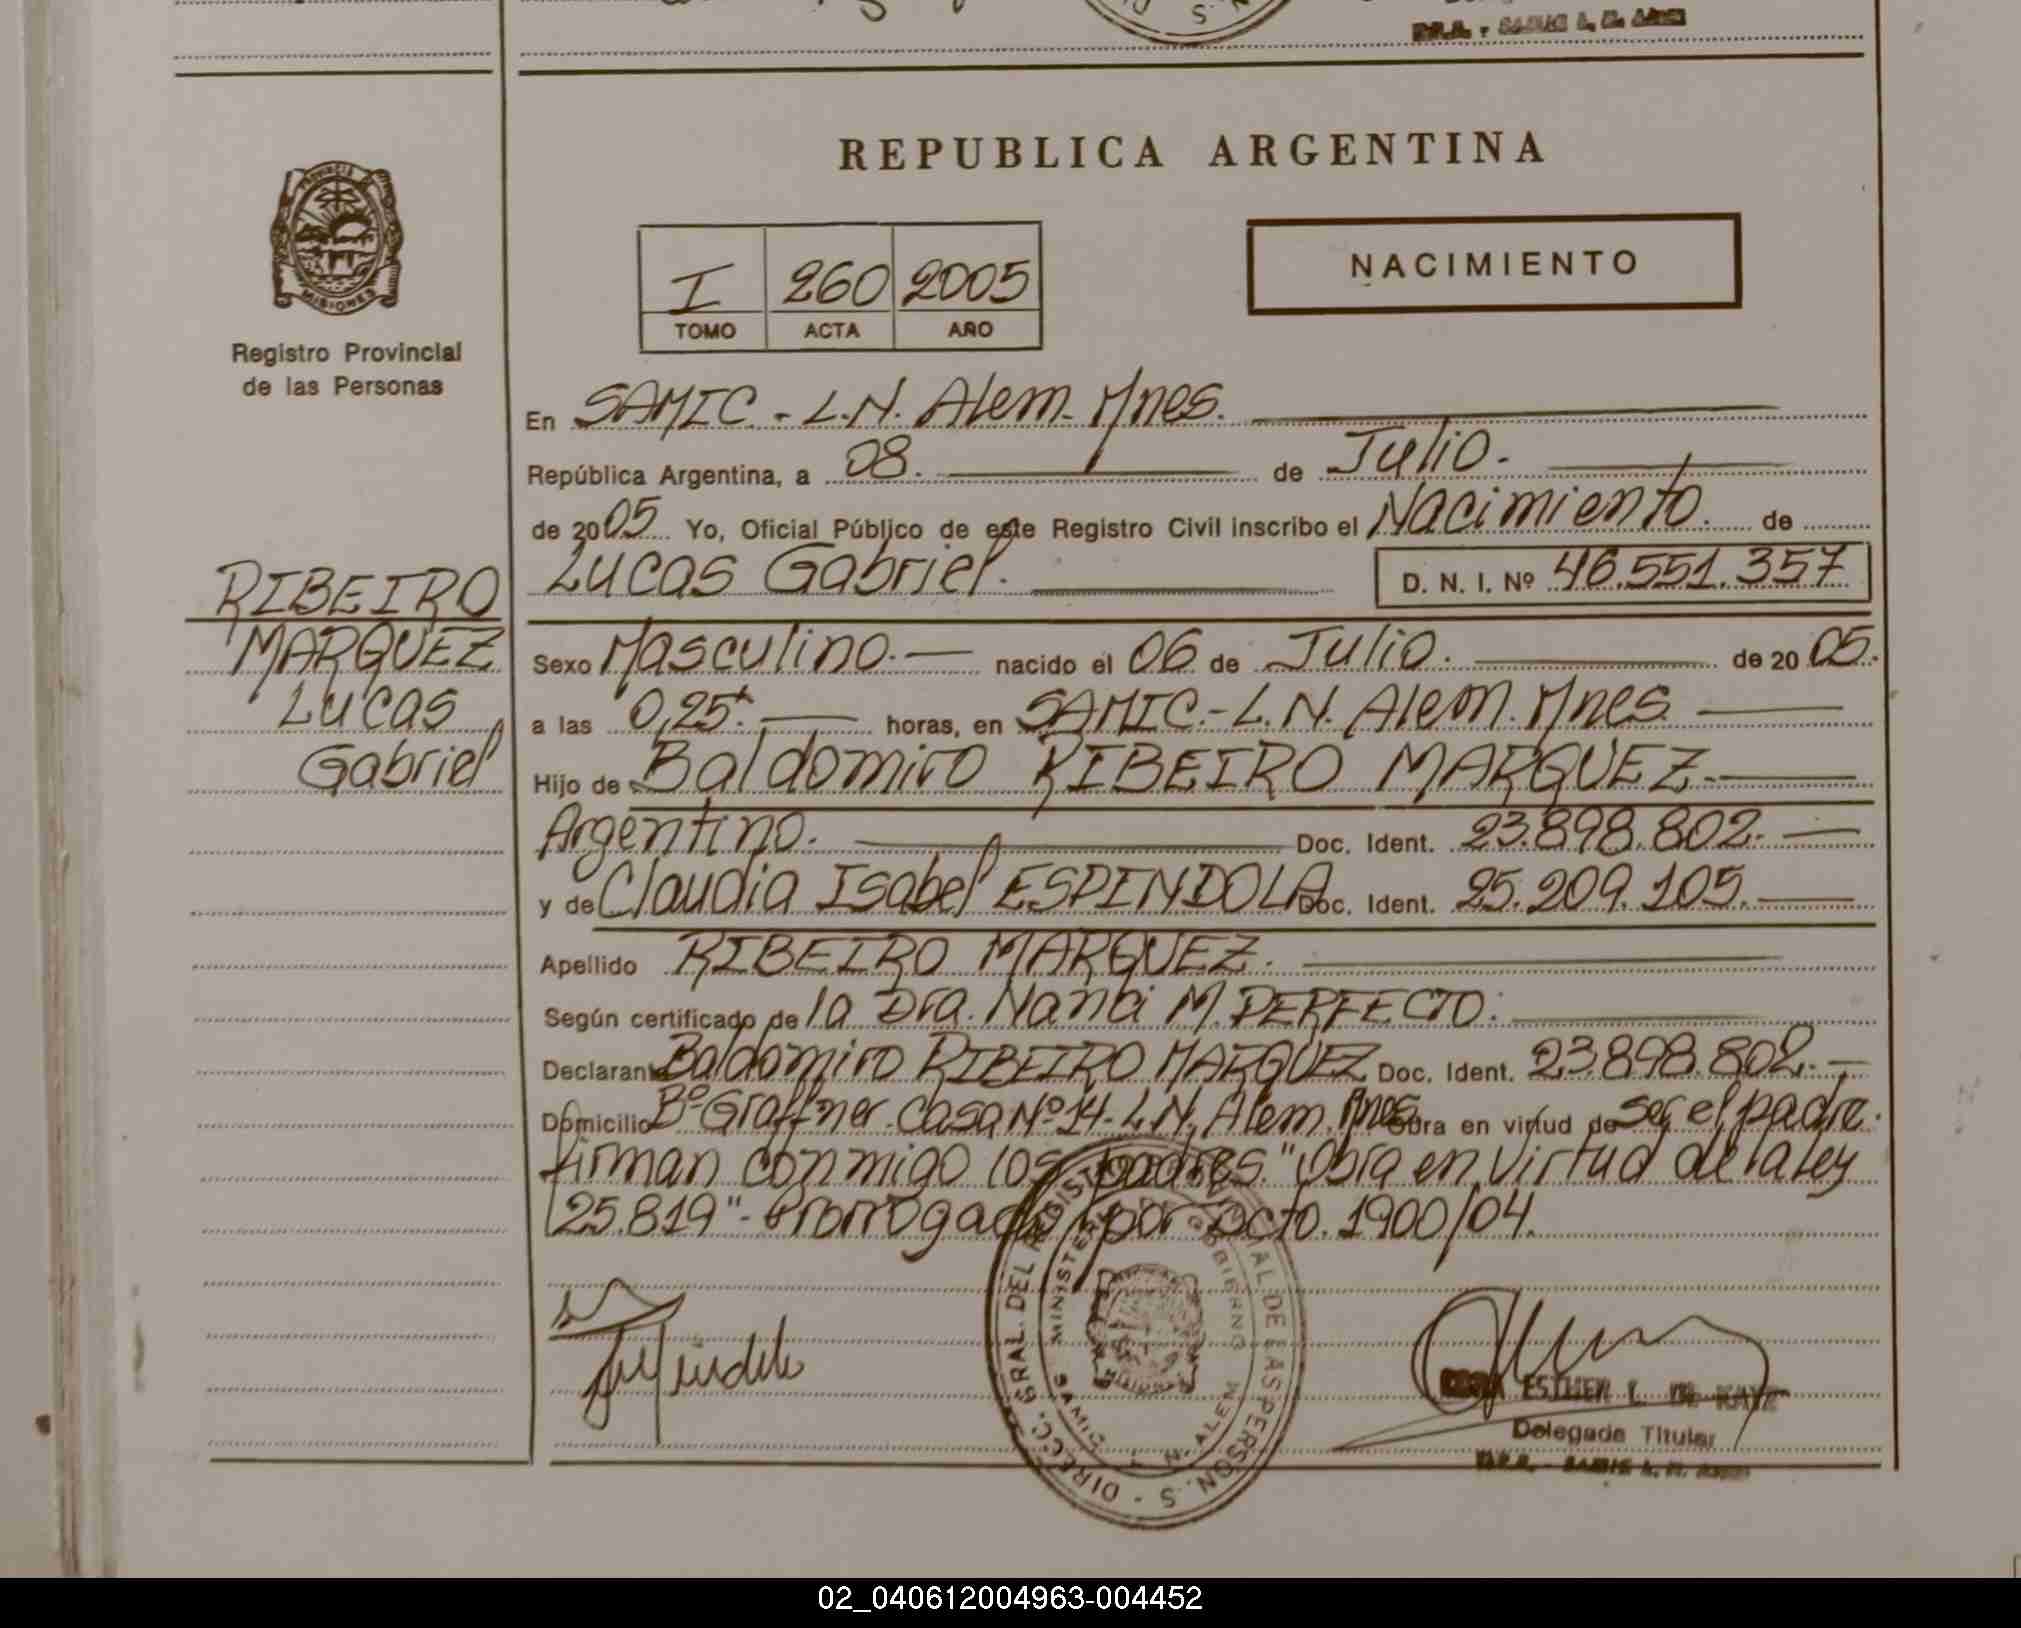 REPUBLICA ARGENTINA
PROVINCIA DE
MISIONES
Registro Provincial
de las Personas
I 260 2005
TOMO ACTA AÑO
NACIMIENTO
En SAMIC.- L.N. Alem. Mnes.
República Argentina, a 08. de Julio.
de 2005 Yo, Oficial Público de este Registro Civil inscribo el Nacimiento. de
Lucas Gabriel. D. N. I. Nº 46.551.357
RIBEIRO
MARQUEZ
Lucas
Gabriel
Sexo Masculino.- nacido el 06 de Julio. de 2005.
a las 0,25. horas, en SAMIC.- L.N. Alem. Mnes.
Hijo de Baldomiro RIBEIRO MARQUEZ.
Argentino. Doc. Ident. 23.898.802.-
y de Claudia Isabel ESPINDOLA Doc. Ident. 25.209.105.
Apellido RIBEIRO MARQUEZ.
Según certificado de la Dra. Nanci M. PERFECTO.
Declarante Baldomiro RIBEIRO MARQUEZ Doc. Ident. 23.898.802.-
Domicilio Bº Graffner. Casa Nº 14- L.N. Alem. Mnes. Obra en virtud de ser el padre.
firman conmigo los padres. "Obra en virtud de la Ley
25.819"- Prorrogado por Dcto. 1900/04.
DIRECC. GRAL. DEL REGISTRO PROVINCIAL DE LAS PERSONAS
MINISTERIO DE GOBIERNO
SAMIC L. N. ALEM
ESTHER L. DE
Delegada Titular
SAMIC L. N. ALEM
02_040612004963-004452